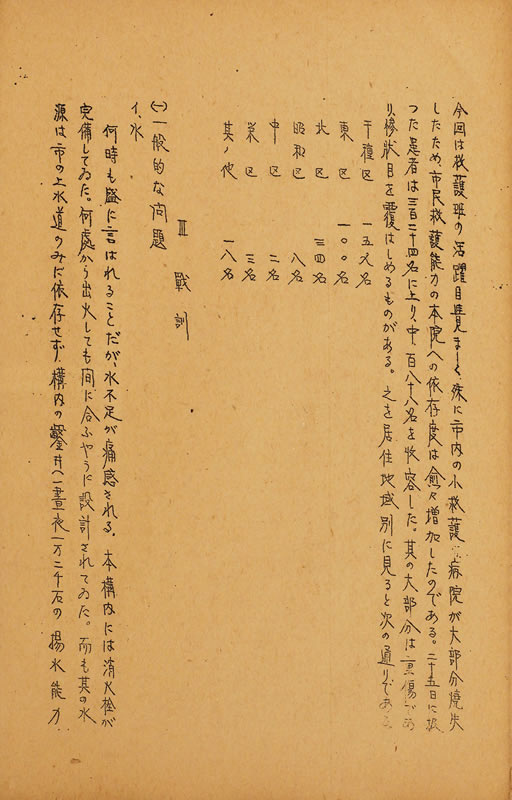 今回は救護班の活躍目覚ましく、殊に市内の小救護病院が大部分焼失
したため、市民救護能力の本院への依存度は愈々増加したのである。二十五日に扱
つた患者は三百二十四名に上り、中、百八十八名を收容した。其の大部分は重傷であ
り、惨状目を覆はしめるものがある。之を居住地域別に見ると次の通りである
千種区 一五八名
東区 一〇〇名
北区 三四名
昭和区 八名
中区 二名
栄区 三名
其ノ他 一八名
Ⅲ 戰訓
(一)一般的な问題
イ、水
何時も盛に言はれることだが、水不足が痛感される。本構内には消火栓が
完備してゐた。何處から出火しても间に合ふやうに設計されてゐた。而も其の水
源は市の上水道のみに依存せず、構内の鑿井へ一晝夜一万二千石の揚水能力